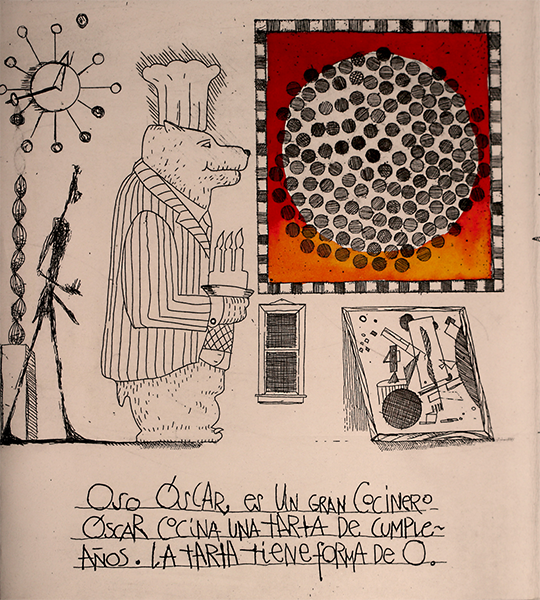 OSO ÓSCAR, ES UN GRAN COCINERO
ÓSCAR COCINA UNA TARTA DE CUMPLE-
AÑOS. LA TARTA TIENE FORMA DE O.